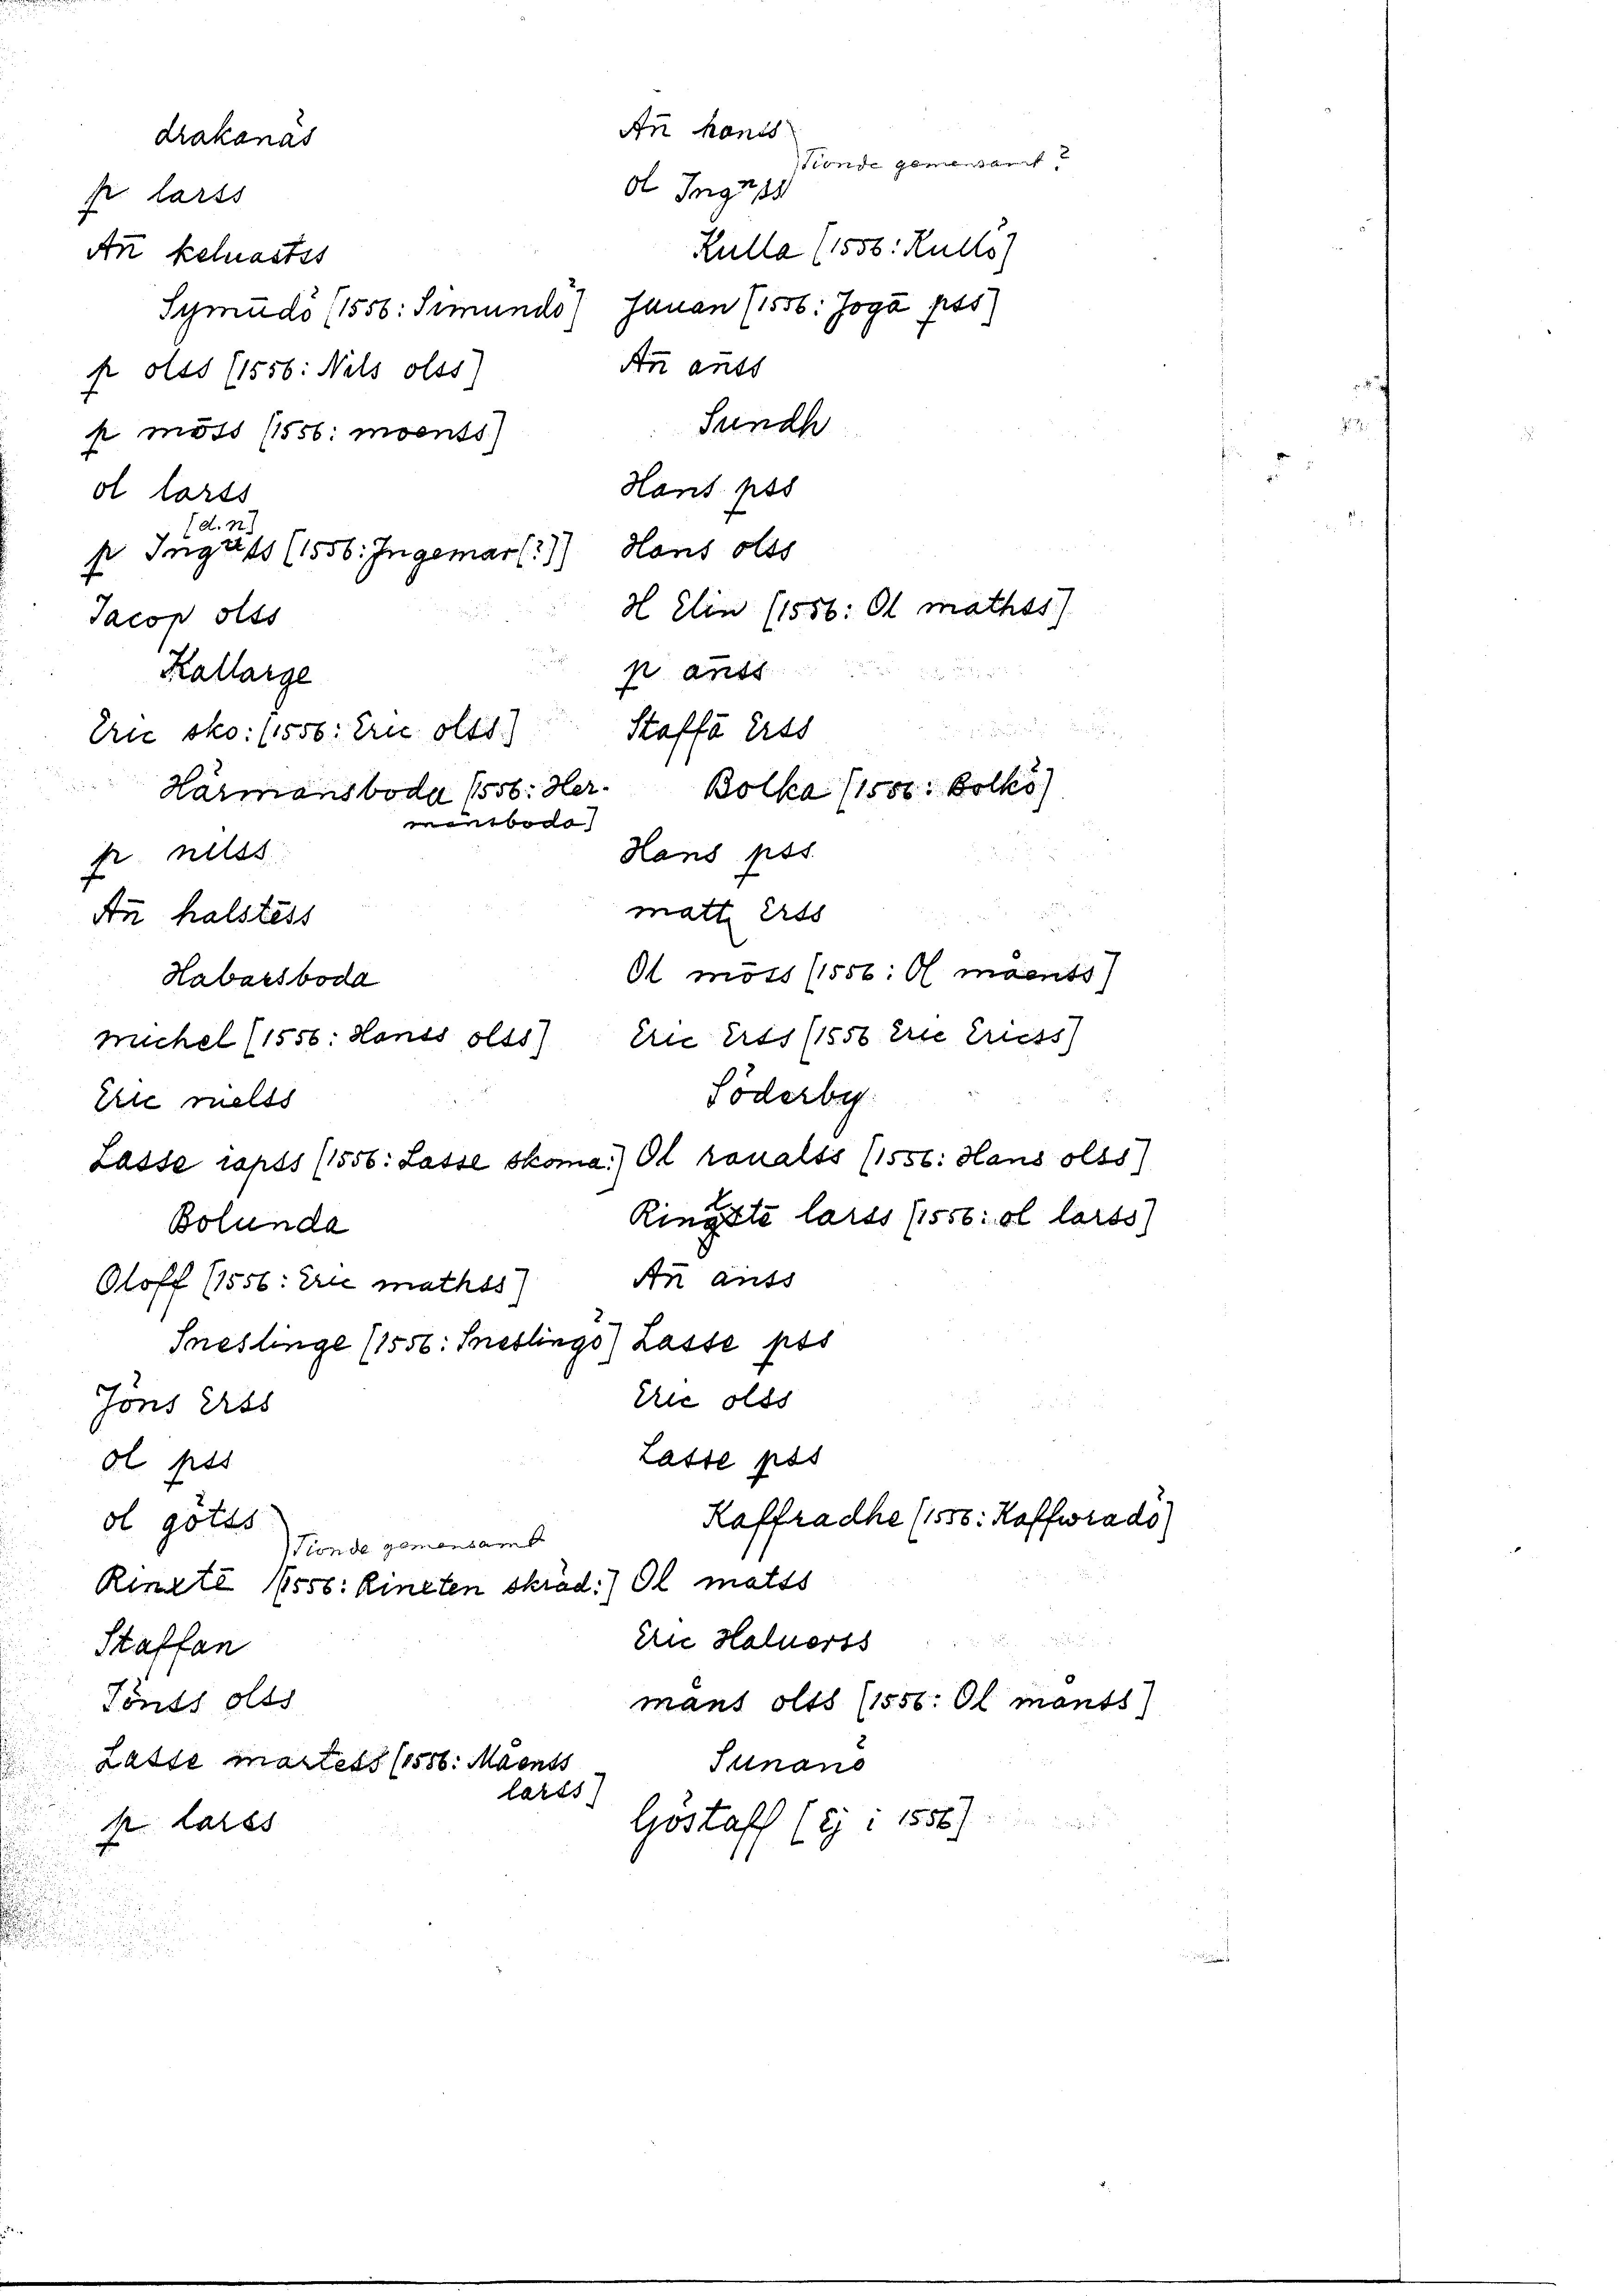 drakanäs
p larss
An̄ keluastss
Symūdö (1556: Simundö)
p olss (1556: Nils olss)
p mōss (1556: moenss)
ol larss
[d.n]
p (1556: Ingemar(?))
Jacop olss
Kallarge
Eric sko: (1556: Eric olss)
Härmansboda (1556: Her-
mansboda)
p nilss
An̄ halstēss
Habarsboda
michel (1556: Hanss olss)
Eric nielss
Lasse iapss (1556: Lasse skoma:)
Bolunda
Oloff (1556: Eric mathss)
Sneslinge (1556: Sneslingö)
Jöns Erss
ol pss
ol götss
Tionde gemensamt
Rinxtē (1556: Rincten skräd:)
Staffan
Jönss olss
Lasse martess (1556: Måenss
larss)
p larss
An̄ hanss
Tionde gemensamt?
ol
Kulla (1556: Kullö)
Jauan (1556: Jogā pss)
An̄ an̄ss
Sundh
Hans pss
Hans olss
H Elin (1556: Ol mathss)
p an̄ss
Staffā Erss
Bolka (1556: Bolkö)
Hans pss
matt Erss
Ol mōss (1556: Ol måenss)
Eric Erss (1556 Eric Ericss)
Söderby
Ol roualss (1556: Hans olss)
larss (1556: ol larss)
An̄ an̄ss
Lasse pss
Eric olss
Lasse pss
Kaffradhe (1556: Kaffwradö)
Ol matss
Eric Haluorss
måns olss (1556: Ol månss)
Sunanö
Göstaff (Ej i 1556)